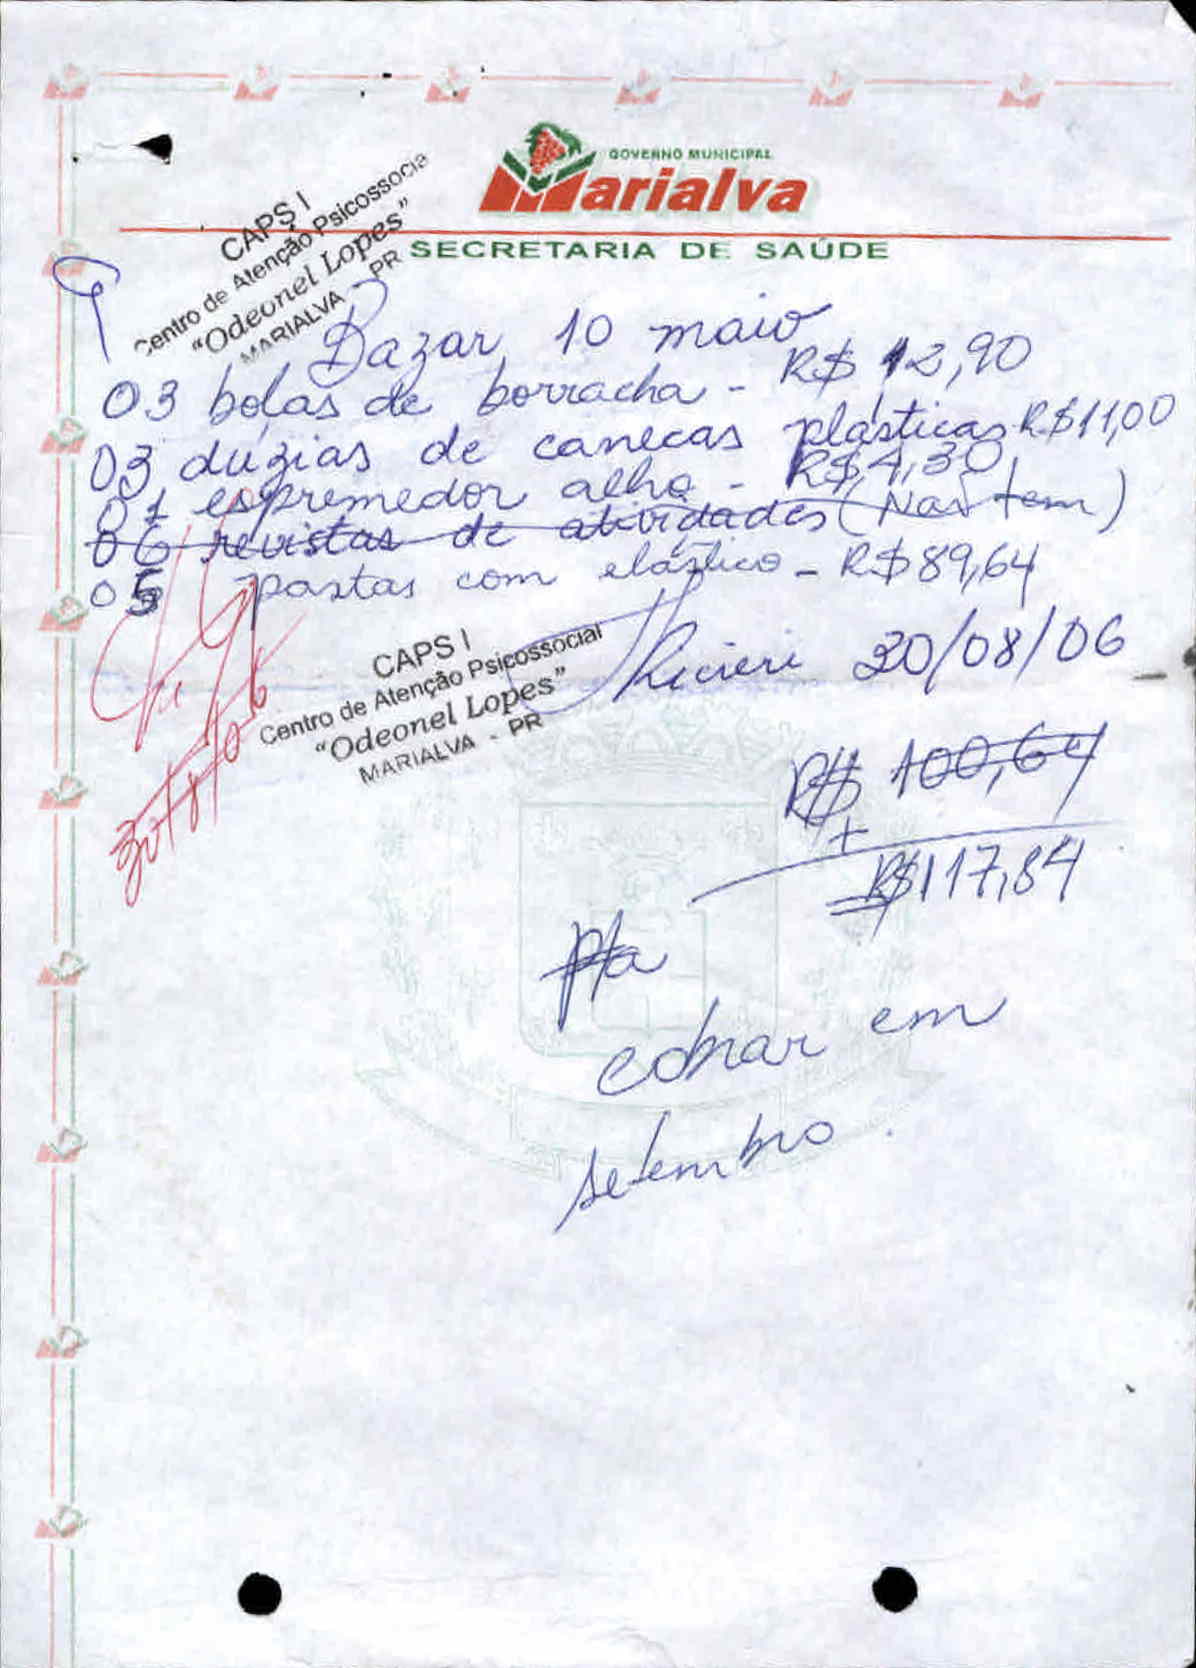 GOVERNO MUNICIPAL
Marialva
SECRETARIA DE SAÚDE
CAPS I
Centro de Atenção Psicossocia
"Odeonel Lopes"
MARIALVA - PR
Bazar 10 maio
03 bolas de borracha - R$ 12,90
03 dúzias de canecas plásticas R$11,00
01 espremedor alho - R$4,30
06 revistas de atividades (Não tem)
05 pastas com elástico - R$89,64
30/08/06
CAPS I
Centro de Atenção Psicossocial
"Odeonel Lopes"
MARIALVA - PR
30/8/06
R$ 100,64
+
R$117,84
p/a
cobrar em
setembro.